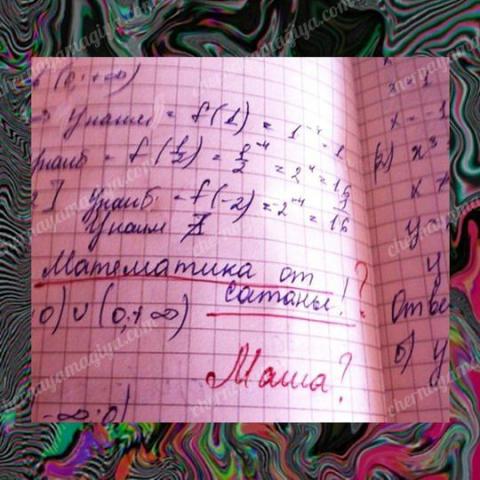 (0; +∞)
Унаим = f(1) = 1⁻⁴ = 1
= f(1/2) = 1/2⁻⁴ = 2⁴ = 16
Унаиб. = f(-2) = 2⁻⁴ = 16
Унаим ∄
Математика от
сатаны! ?
0) ∪ (0; +∞)
Маша?
-∞; 0)
x = 1
x = -1
x³
x
y
y
Отве
б) y
chernayamagiya.com